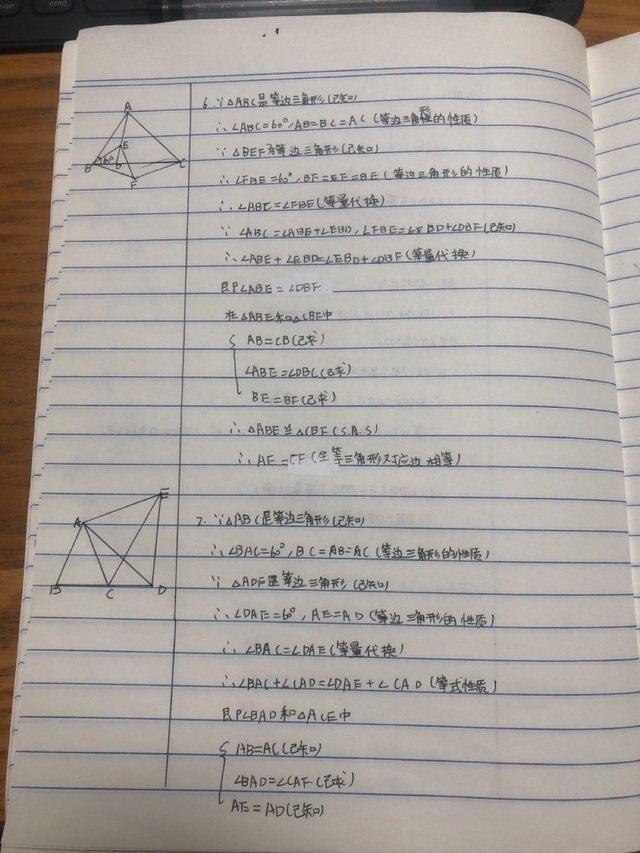 6. ∵△ABC是等边三角形(已知)
∴∠ABC=60°,AB=BC=AC(等边三角形的性质)
∵△BEF为等边三角形(已知)
∴∠FBE=60°,BF=EF=BE(等边三角形的性质)
∴∠ABC=∠FBE(等量代换)
∵∠ABC=∠ABE+∠EBD,∠FBE=∠EBD+∠DBF(已知)
∴∠ABE+∠EBD=∠EBD+∠DBF(等量代换)
即∠ABE=∠DBF
在△ABE和△CBF中
AB=CB(已求)
∠ABE=∠DBC(已求)
BE=BF(已求)
∴△ABE≌△CBF(S.A.S)
∴AE=CF(全等三角形对应边相等)
A
E
B
60°
D
C
F
7. ∵△ABC是等边三角形(已知)
∴∠BAC=60°,BC=AB=AC(等边三角形的性质)
∵△ADE是等边三角形(已知)
∴∠DAE=60°,AE=AD(等边三角形的性质)
∴∠BAC=∠DAE(等量代换)
∴∠BAC+∠CAD=∠DAE+∠CAD(等式性质)
即∠BAD和△ACE中
AB=AC(已知)
∠BAD=∠CAE(已求)
AE=AD(已知)
E
A
B
C
D
cmd